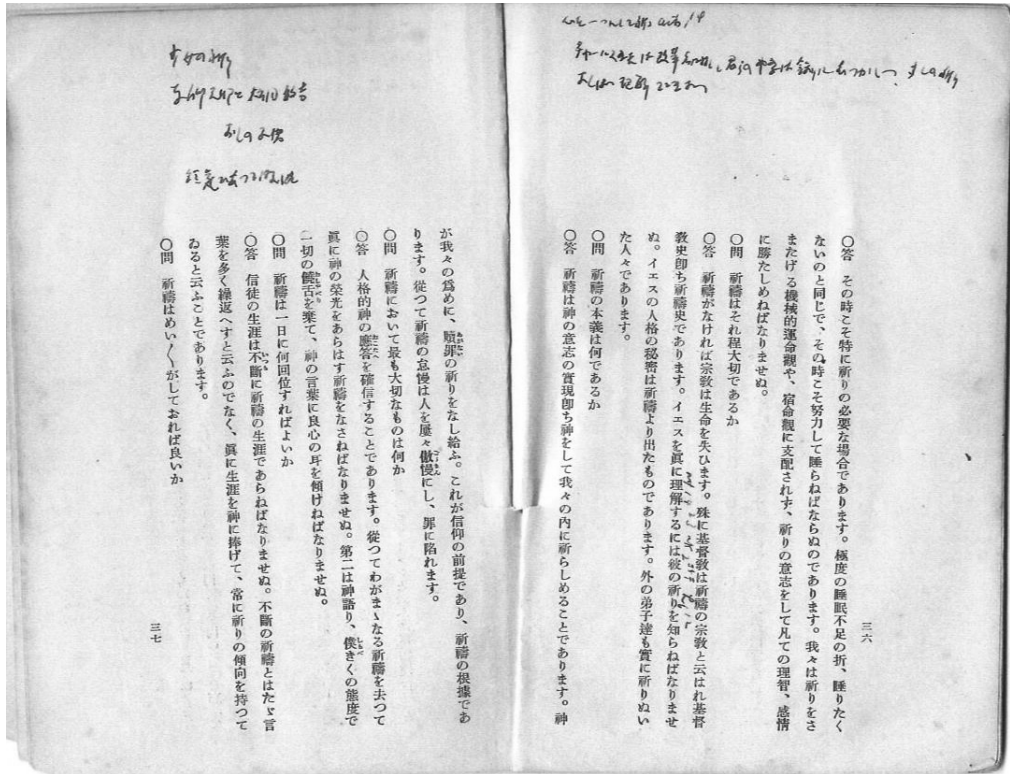 〇答　その時こそ特に祈りの必要な場合であります。極度の睡眠不足の折、睡りたく
ないのと同じで、その時こそ努力して睡らねばならぬのであります。我々は祈りをさ
またげる機械的運命觀や、宿命觀に支配されず、祈りの意志をして凡ての理智、感情
に勝たしめねばなりませぬ。
〇問　祈禱はそれ程大切であるか
〇答　祈禱がなければ宗敎は生命を失ひます。殊に基督敎は祈禱の宗敎と云はれ基督
敎史卽ち祈禱史であります。イエスを眞に理解するには彼の祈りを知らねばなりませ
ぬ。イエスの人格の秘密は祈禱より出たものであります。外の弟子達も實に祈りぬい
た人々であります。
〇問　祈禱の本義は何であるか
〇答　祈禱は神の意志の實現卽ち神をして我々の內に祈らしめることであります。神
三六
が我々の爲めに、贖罪の祈りをなし給ふ。これが信仰の前提であり、祈禱の根據であ
ります。從つて祈禱の怠慢は人を屢々傲慢にし、罪に陷れます。
〇問　祈禱において最も大切なものは何か
〇答　人格的神の應答を確信することであります。從つてわがまゝなる祈禱を去つて
眞に神の榮光をあらはす祈禱をなさねばなりませぬ。第二は神語り、僕きくの態度で
一切の饒舌を棄て、神の言葉に良心の耳を傾けねばなりませぬ。
〇問　祈禱は一日に何回位すればよいか
〇答　信徒の生涯は不斷に祈禱の生涯であらねばなりませぬ。不斷の祈禱とはたゞ言
葉を多く繰返へすと云ふのでなく、眞に生涯を神に捧げて、常に祈りの傾向を持つて
ゐると云ふことであります。
〇問　祈禱はめい〱がしておれば良いか
三七